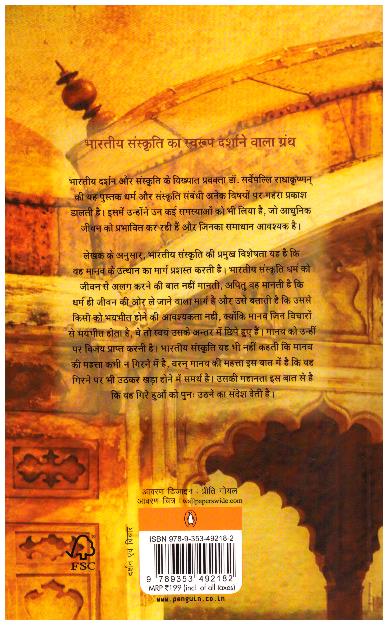 भारतीय संस्कृति का स्वरूप दर्शाने वाला ग्रंथ
भारतीय दर्शन और संस्कृति के विख्यात प्रवक्ता डॉ. सर्वेपल्लि राधाकृष्णन्
की यह पुस्तक धर्म और संस्कृति संबंधी अनेक विषयों पर गहरा प्रकाश
डालती है। इसमें उन्होंने उन कई समस्याओं को भी लिया है, जो आधुनिक
जीवन को प्रभावित कर रही हैं और जिनका समाधान आवश्यक है।
लेखक के अनुसार, भारतीय संस्कृति की प्रमुख विशेषता यह है कि
वह मानव के उत्थान का मार्ग प्रशस्त करती है। भारतीय संस्कृति धर्म को
जीवन से अलग करने की बात नहीं मानती, अपितु वह मानती है कि
धर्म ही जीवन की ओर ले जाने वाला मार्ग है और उसे बताती है कि उससे
किसी को भयभीत होने की आवश्यकता नहीं, क्योंकि मानव जिन विचारों
से भयभीत होता है, वे तो स्वयं उसके अन्तर में छिपे हुए हैं। मानव को उन्हीं
पर विजय प्राप्त करनी है। भारतीय संस्कृति यह भी नहीं कहती कि मानव
की महत्ता कभी न गिरने में है, वरन् मानव की महत्ता इस बात में है कि वह
गिरने पर भी उठकर खड़ा होने में समर्थ है। उसकी महानता इस बात से है
कि वह गिरे हुओं को पुनः उठने का संदेश देती है।
आवरण डिज़ाइन : प्रीति गोयल
आवरण चित्र : wallpaperswide.com
दर्शन एवं विचार
FSC
ISBN 978-9-353-49218-2
9 789353 492182
MRP ₹199 (incl. of all taxes)
www.penguin.co.in